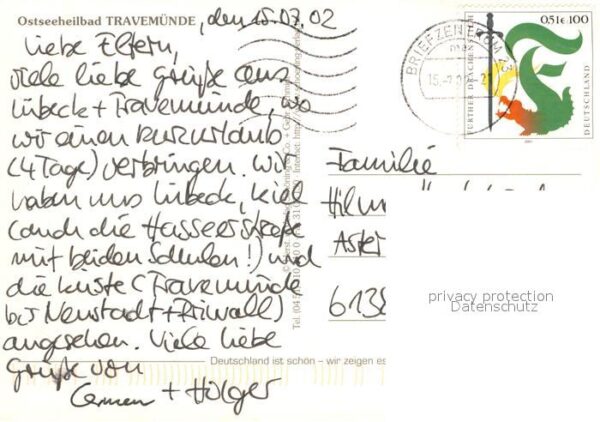 Ostseeheilbad TRAVEMÜNDE, den 15.07.02
Liebe Eltern,
viele liebe Grüße aus
Lübeck + Travemünde, wo
wir einen Kurzurlaub
(4 Tage) verbringen. Wir
haben uns Lübeck, Kiel
(auch die Hasseerstraße
mit beiden Schulen!) und
die Küste (Travemünde
bis Neustadt + Priwall)
angesehen. Viele liebe
Grüße von
Carmen + Holger
BRIEFZENTRUM 23
FURTHER DRACHENSTICH
0,51€ 100
DEUTSCHLAND
Familie
Hilm
Aster
6138
privacy protection
Datenschutz
Deutschland ist schön – wir zeigen es